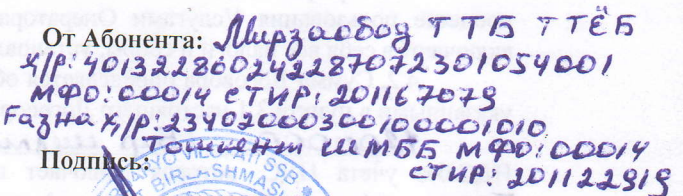 От Абонента: Мирзаобод ТТБ ТТЁБ
х/р: 401322860242287072301054001
МФО: 00014 СТИР: 201167079
Ғазна х/р: 23402000300100001010
Тошкент ШМББ МФО: 00014
Подпись:
СТИР: 201122919
VILOYATI SSB
BIRLASHMASI